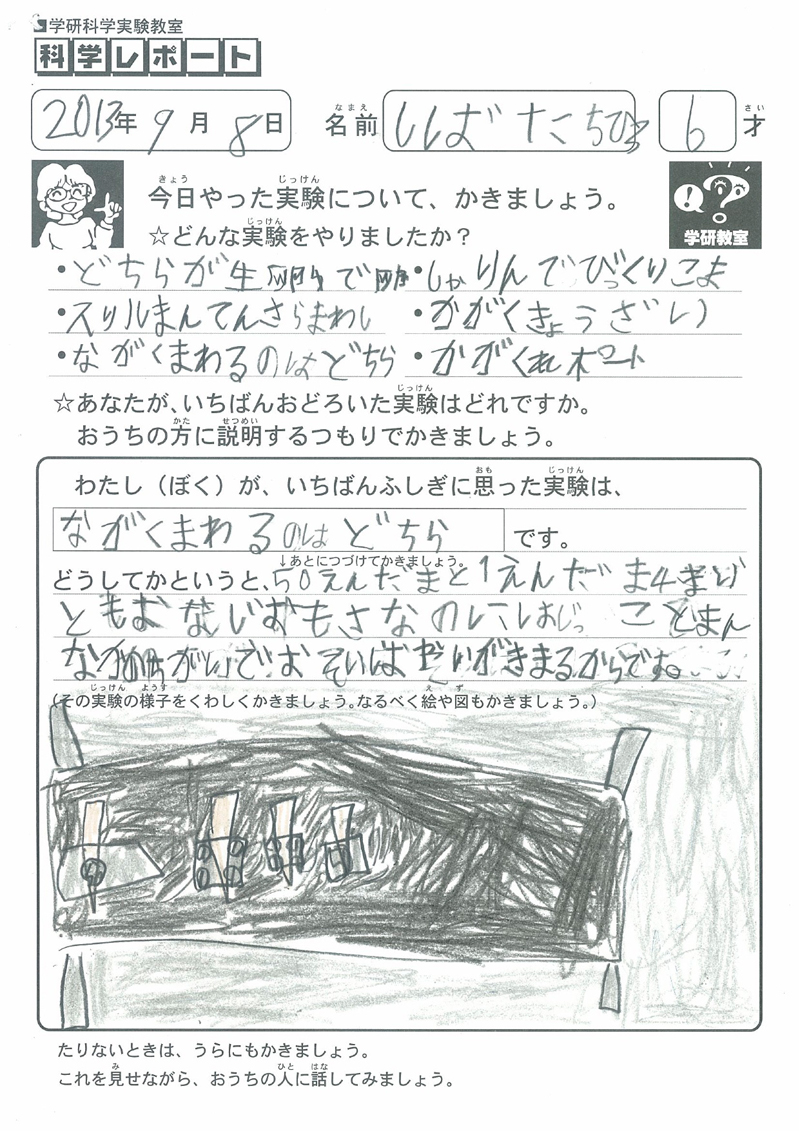 学研科学実験教室
科学レポート
2013年 9月 8日 名前 しばたちひろ 6才
今日やった実験について、かきましょう。
学研教室
☆どんな実験をやりましたか？
・どちらが生 で ・しゃりんでびっくりこま
・スリルまんてんさらまわし ・かがくきょうざい
・ながくまわるのはどちら ・かがくれポート
☆あなたが、いちばんおどろいた実験はどれですか。
おうちの方に説明するつもりでかきましょう。
わたし（ぼく）が、いちばんふしぎに思った実験は、
ながくまわるのはどちら です。
↓あとにつづけてかきましょう。
どうしてかというと、50えんだまと1えんだま4まいど
ともおなじおもさなのに はじっことまん
なか ちがいで おそいはやいがきまるからです。
(その実験の様子をくわしくかきましょう。なるべく絵や図もかきましょう。)
たりないときは、うらにもかきましょう。
これを見せながら、おうちの人に話してみましょう。